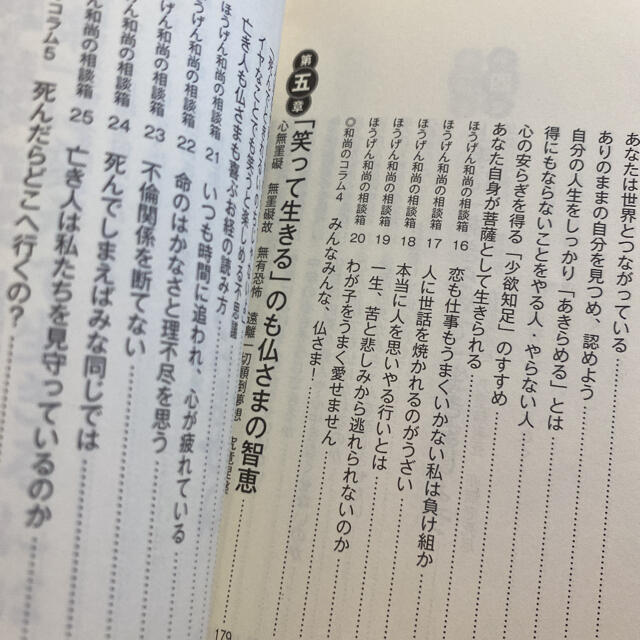 あなたは世界とつながっている
ありのままの自分を見つめ、認めよう
自分の人生をしっかり「あきらめる」とは
得にもならないことをやる人・やらない人
心の安らぎを得る「少欲知足」のすすめ
あなた自身が菩薩として生きられる
ほうげん和尚の相談箱 16 恋も仕事もうまくいかない私は負け組か
ほうげん和尚の相談箱 17 人に世話を焼かれるのがうざい
ほうげん和尚の相談箱 18 本当に人を思いやる行いとは
ほうげん和尚の相談箱 19 一生、苦と悲しみから逃れられないのか
ほうげん和尚の相談箱 20 わが子をうまく愛せません
◎和尚のコラム4 みんなみんな、仏さま!
第五章 「笑って生きる」のも仏さまの智恵
心無罣礙 無罣礙故 無有恐怖 遠離一切顚倒夢想
179
亡き人も仏さまも喜ぶお経の読み方
ほうげん和尚の相談箱 21 いつも時間に追われ、心が疲れている
ほうげん和尚の相談箱 22 命のはかなさと理不尽を思う
和尚の相談箱 23 不倫関係を断てない
和尚の相談箱 24 死んでしまえばみな同じでは
和尚の相談箱 25 亡き人は私たちを見守っているのか
コラム5 死んだらどこへ行くの?